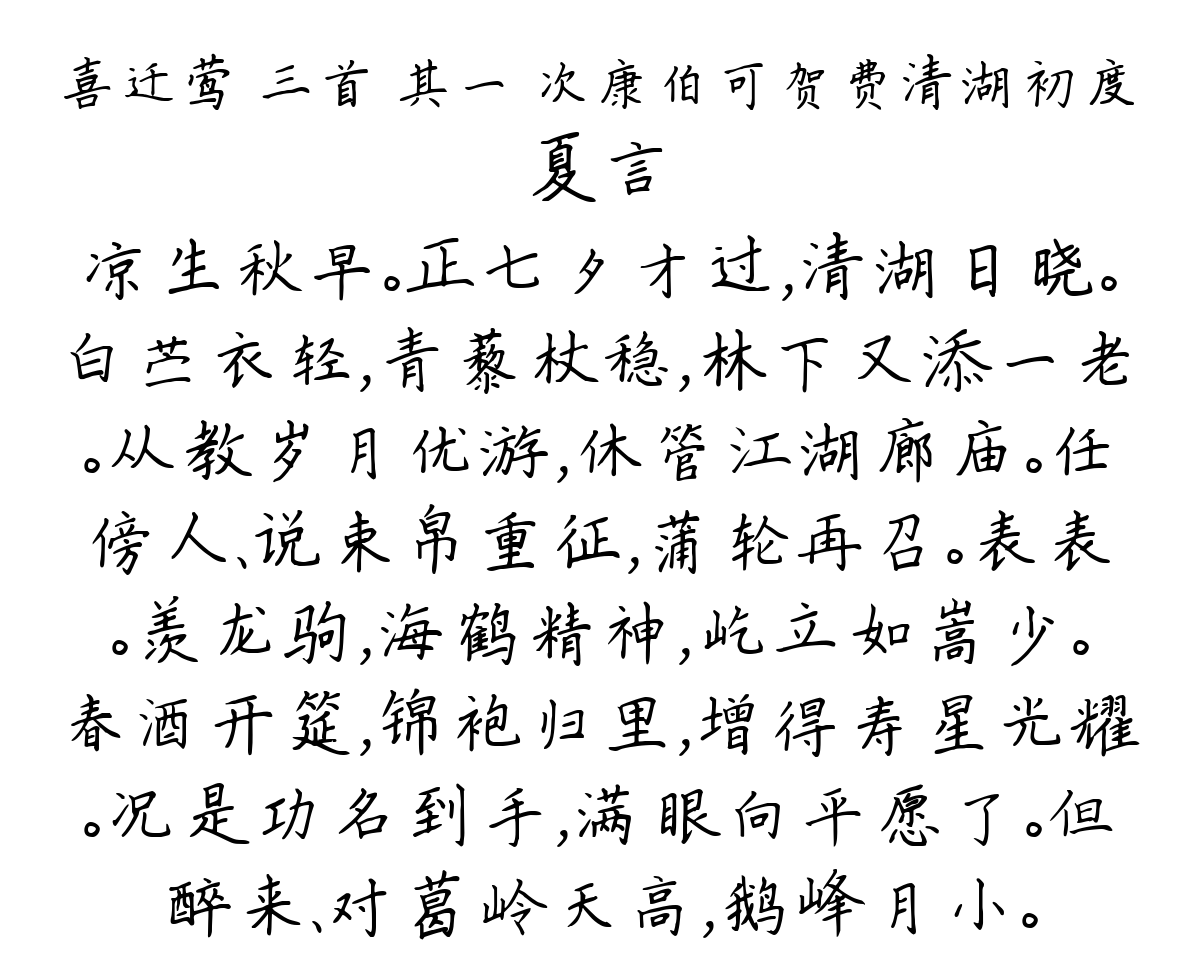 喜迁莺 三首 其一 次康伯可贺费清湖初度
夏言
凉生秋早。正七夕才过,清湖日晓。
白苎衣轻,青藜杖稳,林下又添一老
。从教岁月优游,休管江湖廊庙。任
傍人、说束帛重征,蒲轮再召。表表
。羡龙驹,海鹤精神,屹立如嵩少。
春酒开筵,锦袍归里,增得寿星光耀
。况是功名到手,满眼向平愿了。但
醉来、对葛岭天高,鹅峰月小。